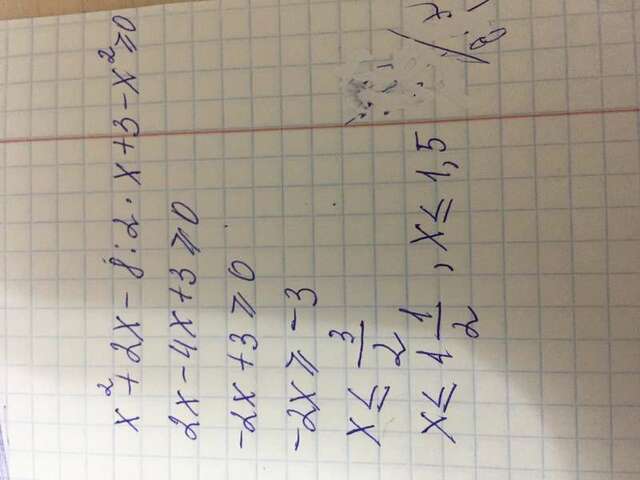 x² + 2x - 8 : 2 · x + 3 - x² ⩾ 0
2x - 4x + 3 ⩾ 0
-2x + 3 ⩾ 0
-2x ⩾ -3
x ≤ 3/2
x ≤ 1 1/2 , x ≤ 1,5